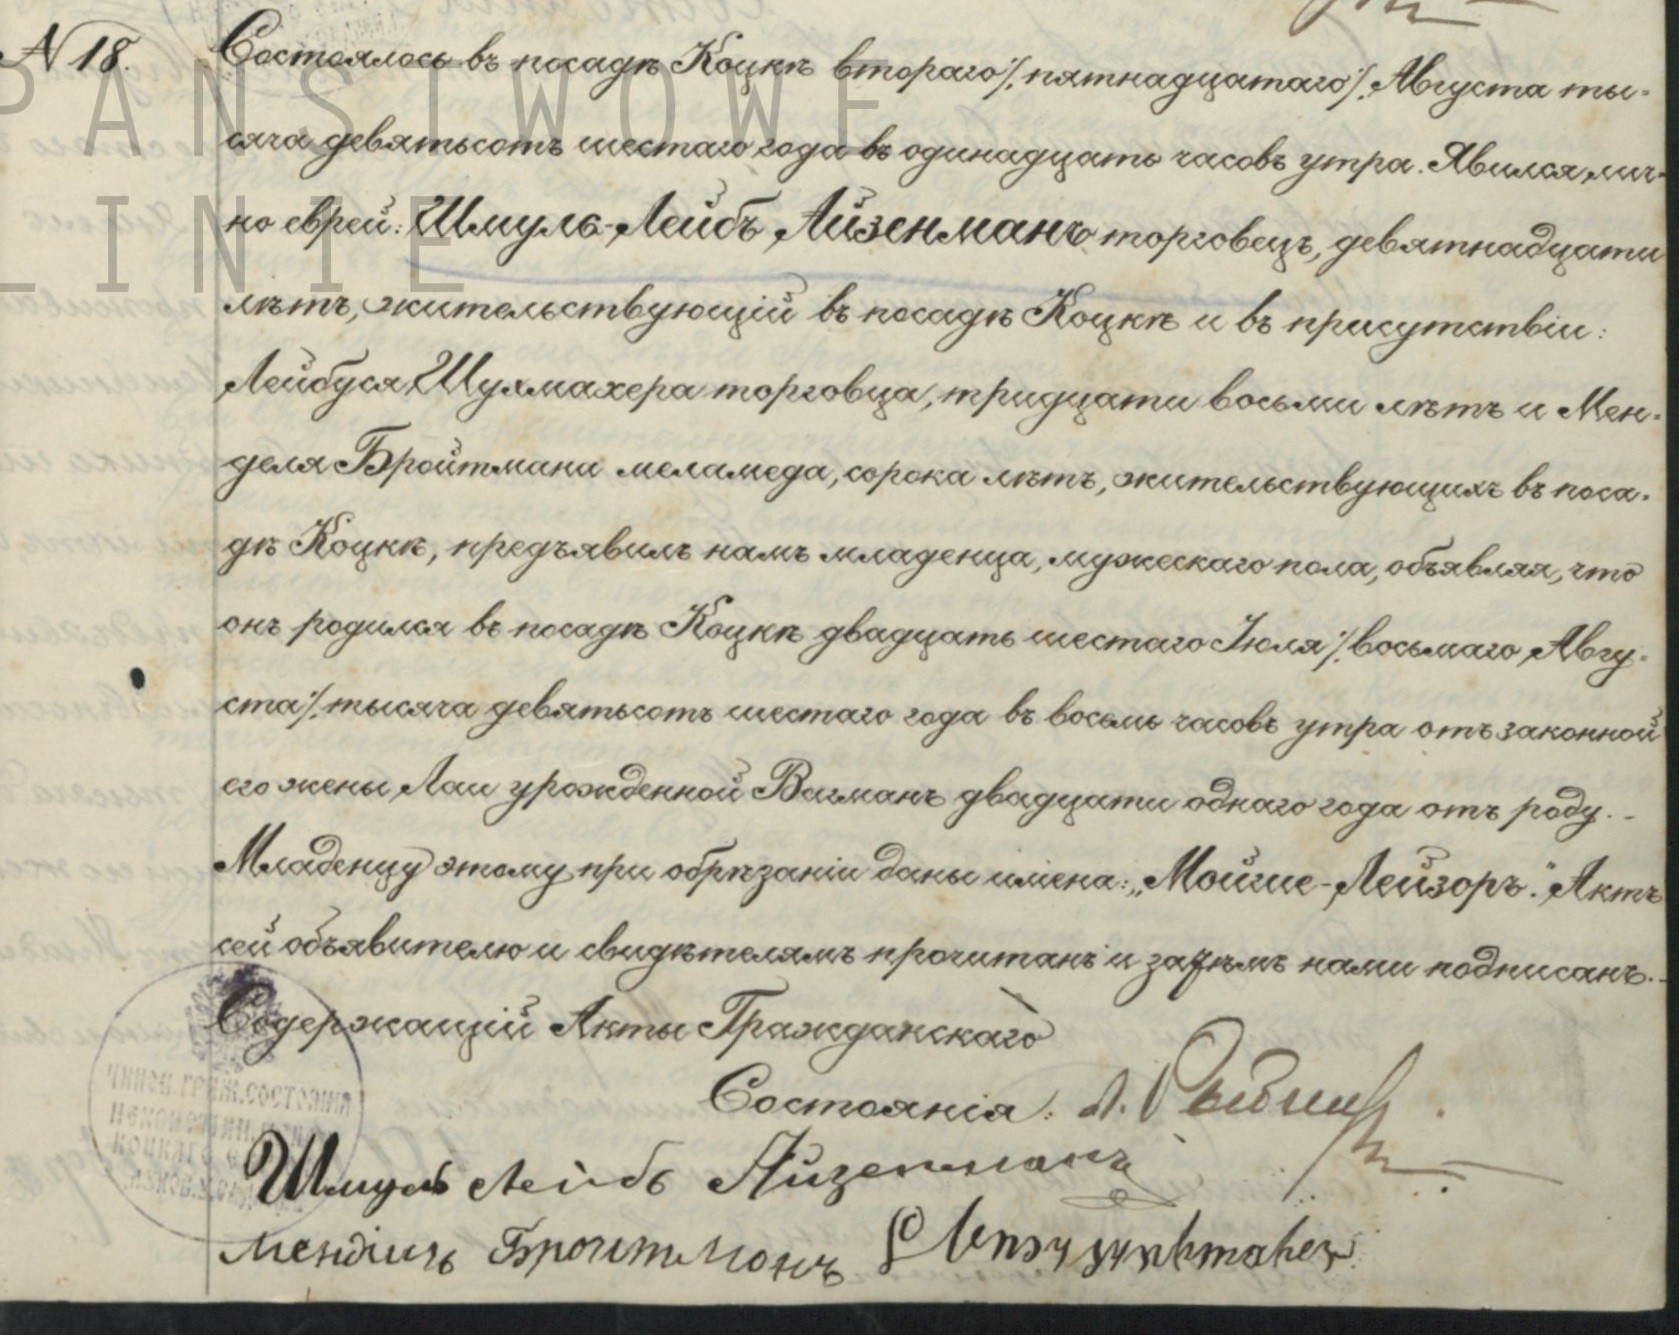 N 18.
Состоялось въ посадѣ Коцкѣ втораго /пятнадцатаго/ Августа ты-
сяча девятьсотъ шестаго года въ одинадцать часовъ утра. Явился лич-
но еврей: Шмуль-Лейбъ Айзенманъ торговецъ, девятнадцати
лѣтъ, жительствующій въ посадѣ Коцкѣ и въ присутствіи:
Лейбуся Шухмахера торговца, тридцати восьми лѣтъ и Мен-
деля Бройтмана меламеда, сорока лѣтъ, жительствующихъ въ поса-
дѣ Коцкѣ, предъявилъ намъ младенца, мужескаго пола, объявляя, что
онъ родился въ посадѣ Коцкѣ двадцать шестаго Іюля /восьмаго Авгу-
ста/ тысяча девятьсотъ шестаго года въ восемь часовъ утра отъ законной
его жены Лаи урожденной Вагманъ двадцати однаго года отъ роду.-
Младенцу этому при обрѣзаніи даны имена: „Мойше-Лейзоръ." Актъ
сей объявителю и свидѣтелямъ прочитанъ и затѣмъ нами подписанъ.-
Содержащій Акты Гражданскаго
Состоянія:
Шмуль Лейбъ Айзенманъ
Бройтмонъ
PANSTWOWE
LINIE